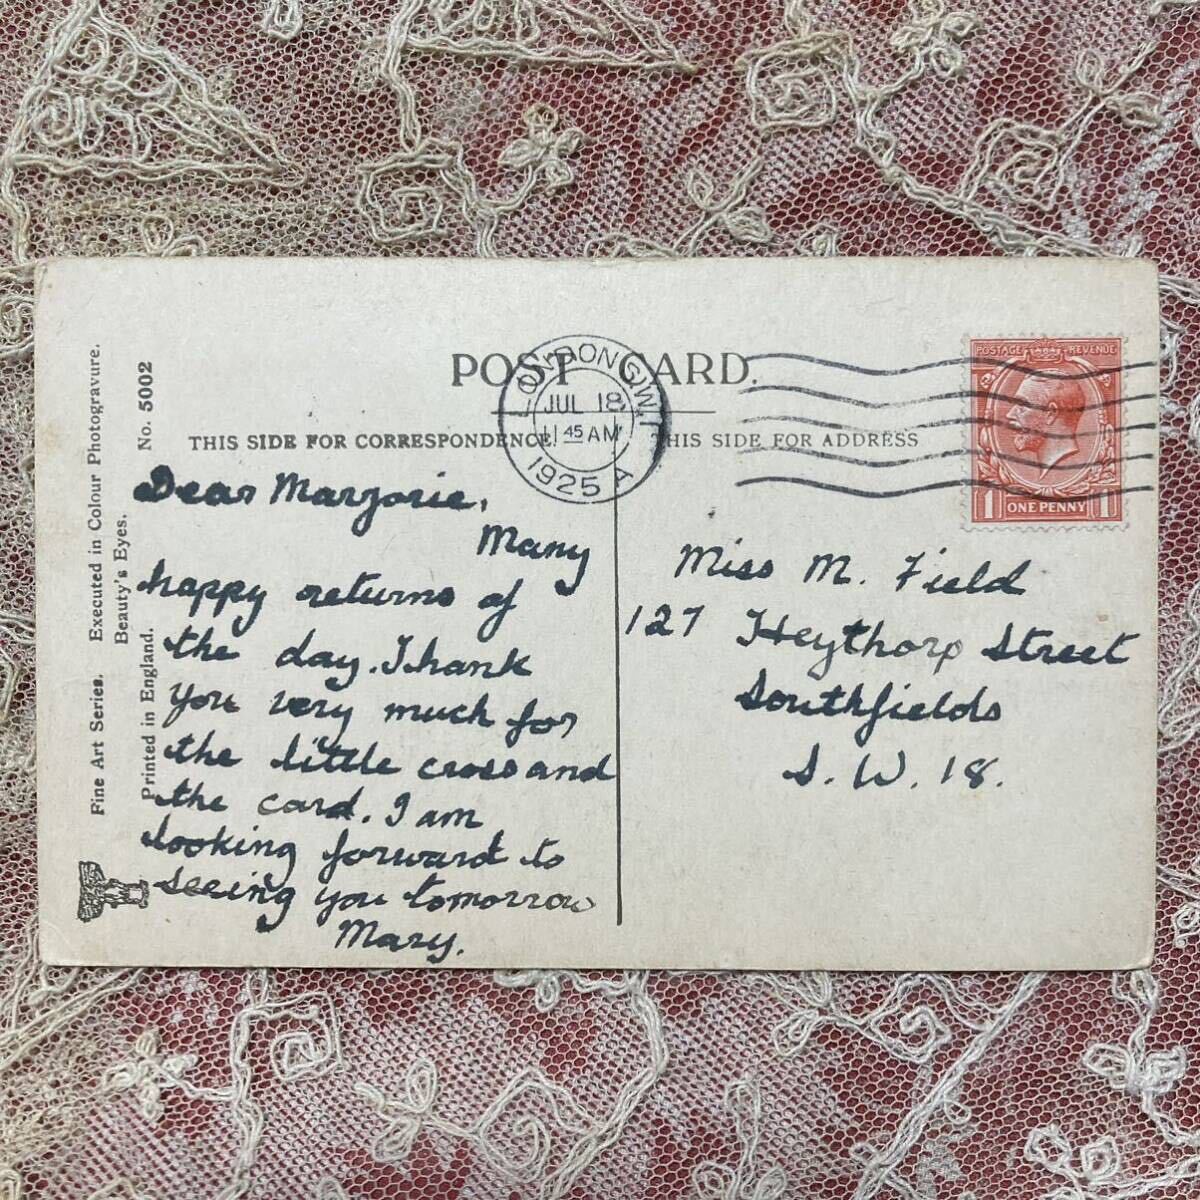 POST CARD.
THIS SIDE FOR CORRESPONDENCE
THIS SIDE FOR ADDRESS
LONDON S.W.1
JUL 18
11 45 AM
1925 A
POSTAGE REVENUE
1 ONE PENNY 1
Fine Art Series. Executed in Colour Photogravure.
Beauty's Eyes. No. 5002
Printed in England.
Dear Marjorie,
Many
happy returns of
the day. Thank
you very much for
the little cross and
the card. I am
looking forward to
seeing you tomorrow
Mary.
Miss M. Field
127 Heythorp Street
Southfields
S. W. 18.